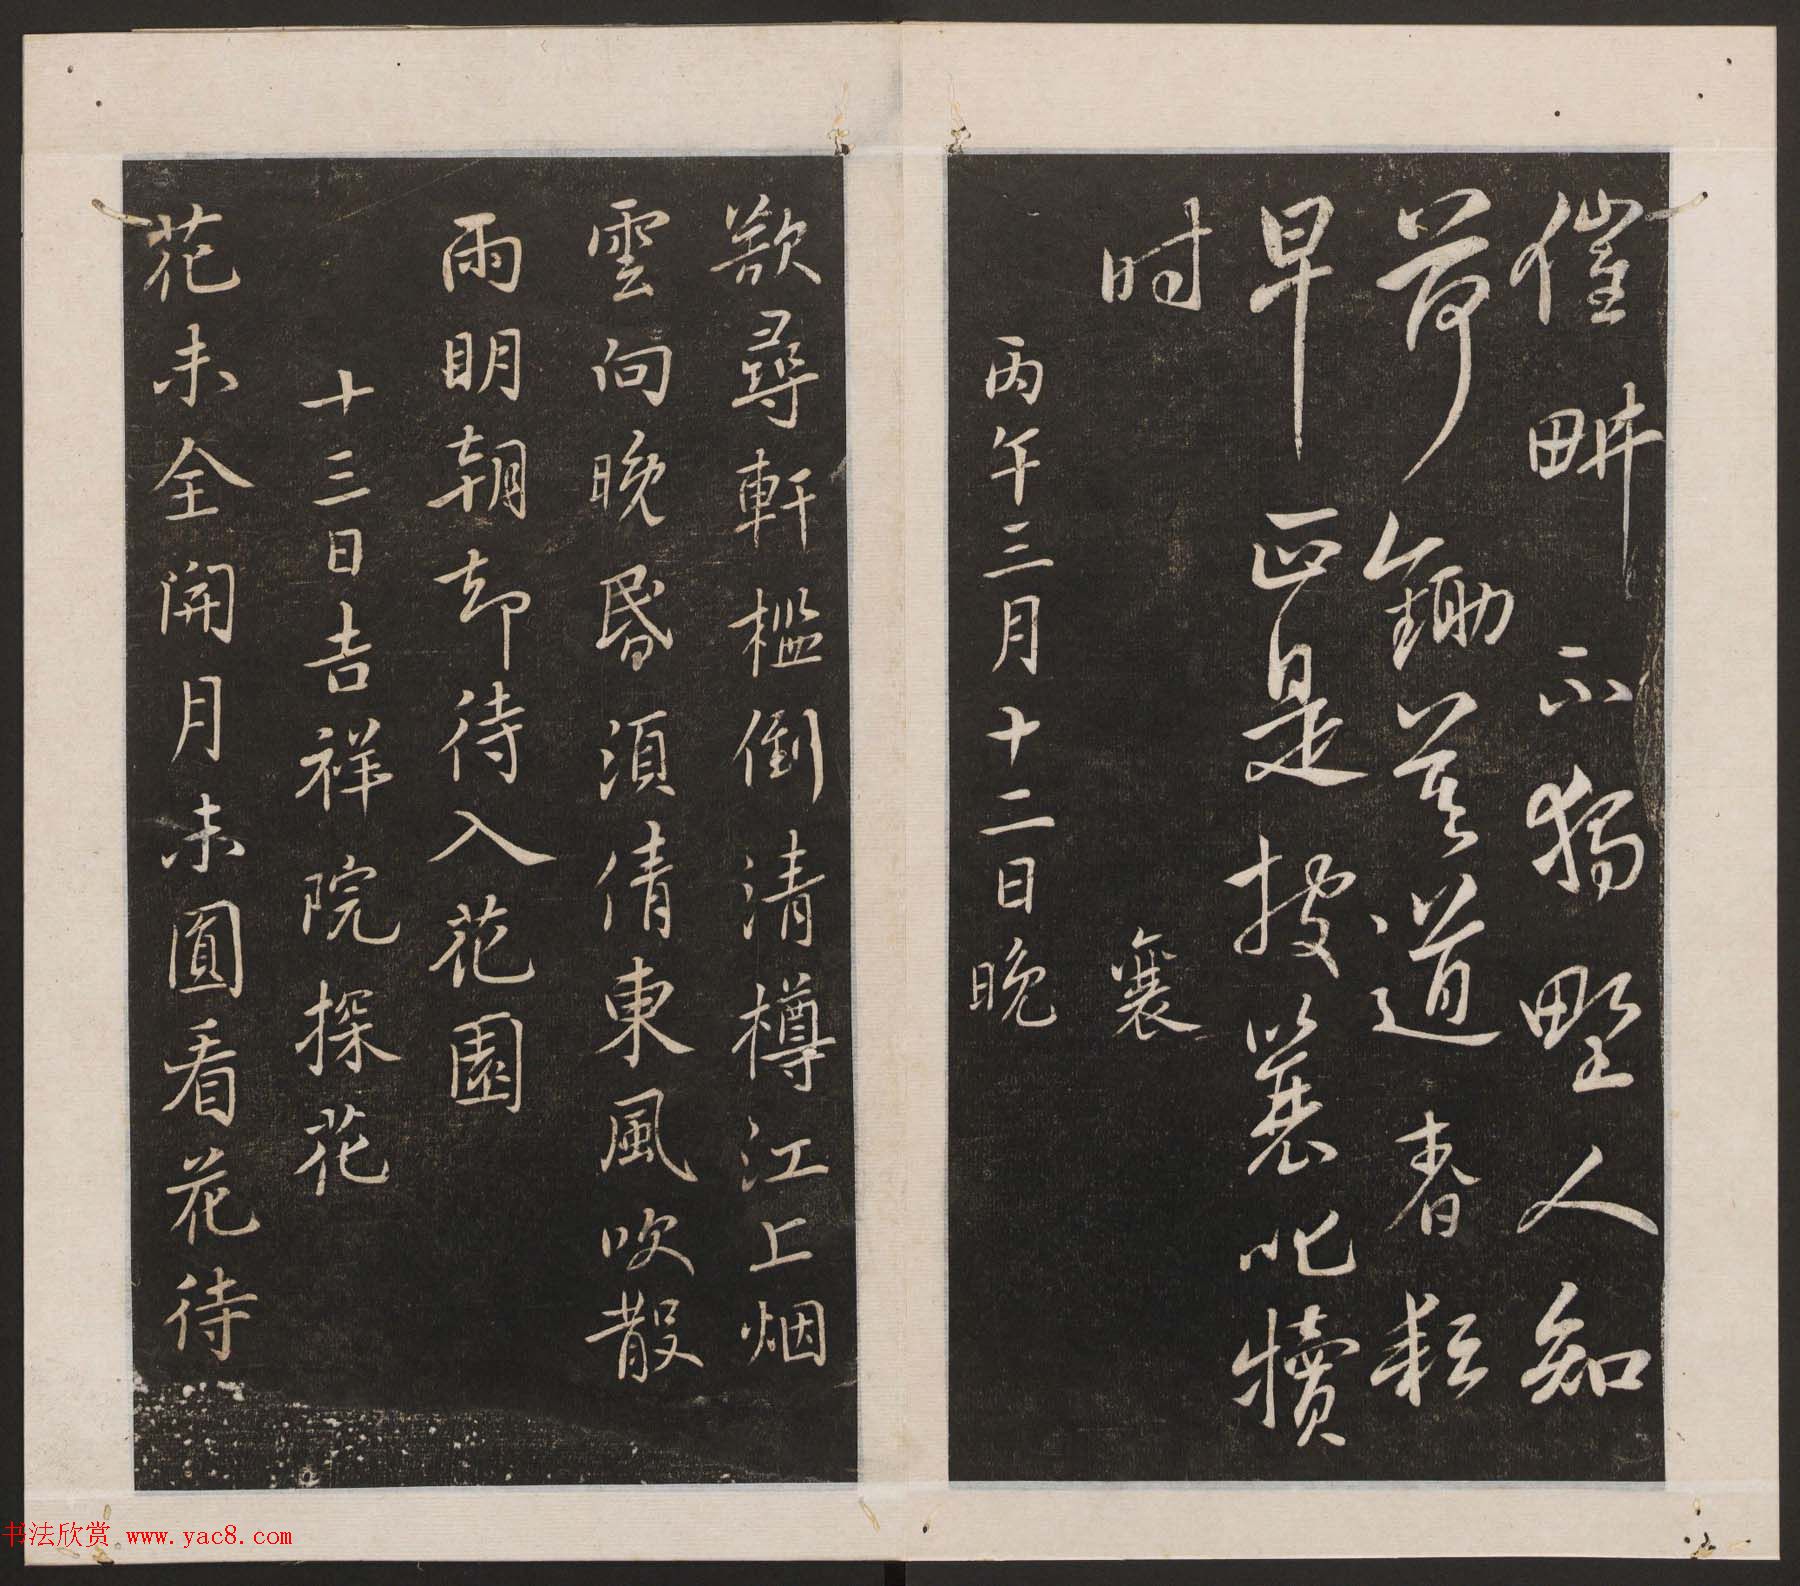 催畊不獨野人知
荷鋤莫道春耘
早正是披蓑叱犢
时
襄
丙午三月十二日晚
欲尋軒檻倒清樽江上烟
雲向晚昏須倩東風吹散
雨明朝却待入花園
十三日吉祥院探花
花未全開月未圓看花待
书法欣赏 www.yac8.com